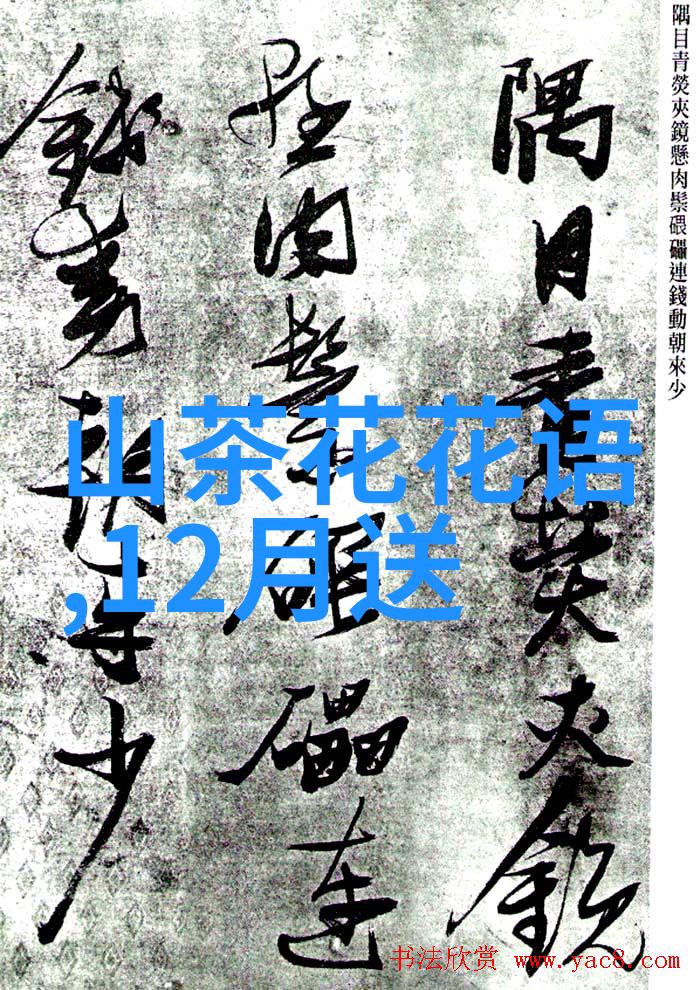 隅目青熒夾鏡懸肉鬃碨礧連錢動朝來少
隅目青熒夾鏡
懸肉鬃碨礧連
錢動朝來少
山茶花花语
,12月送
书法欣赏 www.yac8.com